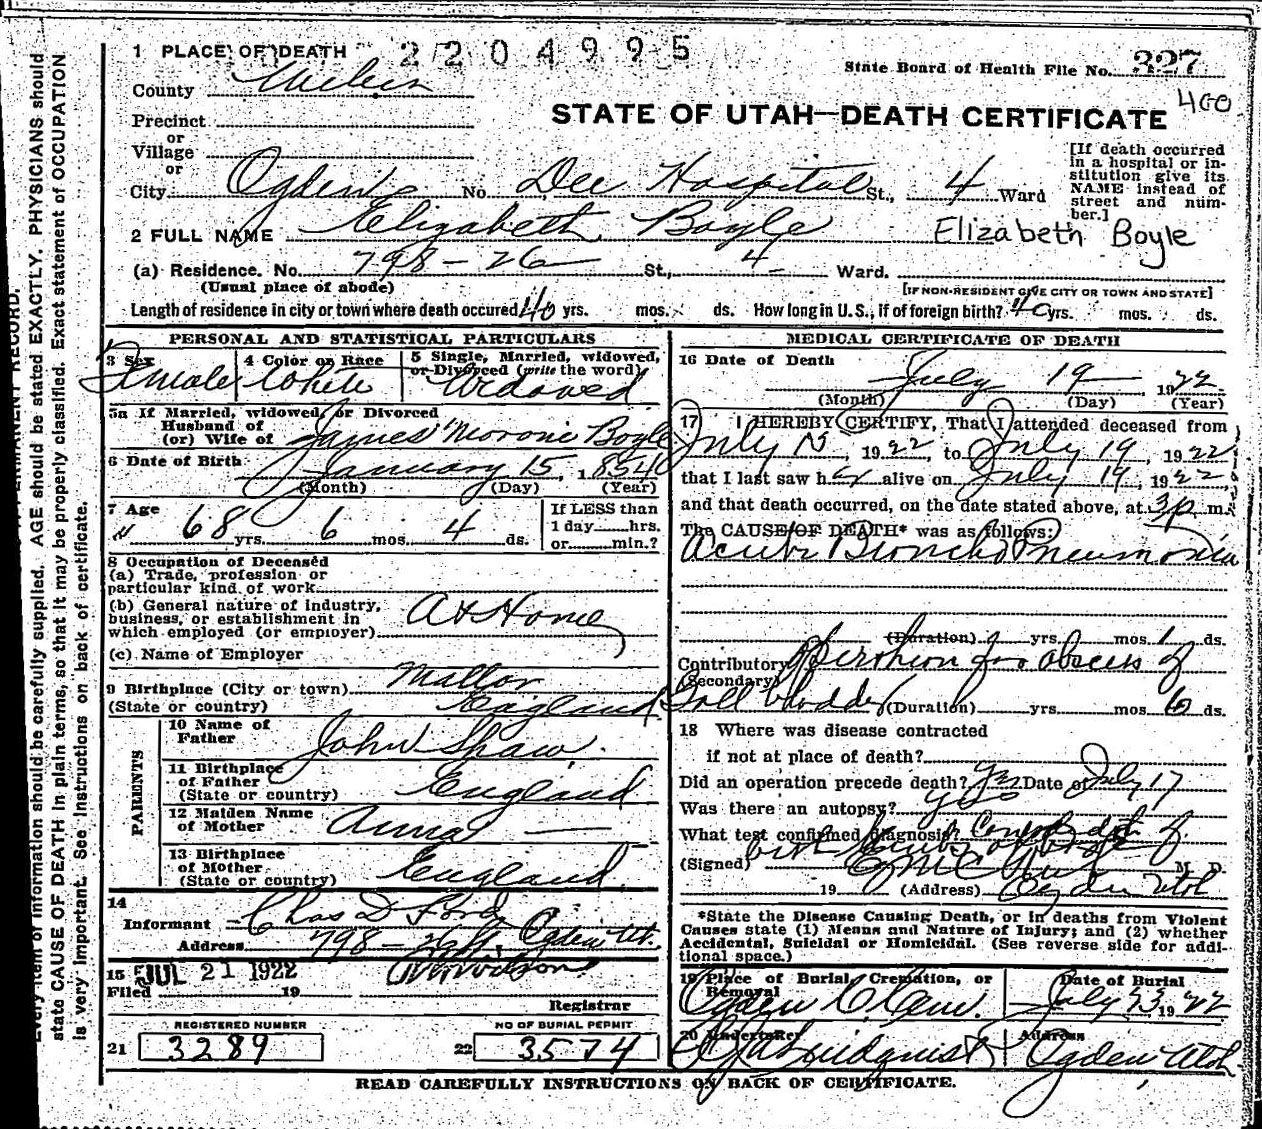 1 PLACE OF DEATH
2204995
State Board of Health File No. 327
400
County Weber
STATE OF UTAH—DEATH CERTIFICATE
Precinct
or
Village
or
City Ogden No. Dee Hospital St., 4 Ward
[If death occurred in a hospital or institution give its NAME instead of street and number.]
2 FULL NAME Elizabeth Boyle
Elizabeth Boyle
(a) Residence. No. 798-26 St., 4 Ward.
(Usual place of abode)
[IF NON-RESIDENT GIVE CITY OR TOWN AND STATE]
Length of residence in city or town where death occured 40 yrs. mos. ds. How long in U.S., if of foreign birth? 40 yrs. mos. ds.
PERSONAL AND STATISTICAL PARTICULARS
3 Sex Female
4 Color or Race White
5 Single, Married, widowed, or Divorced (write the word) Widowed
5a If Married, widowed, or Divorced
Husband of
(or) Wife of James Moroni Boyle
6 Date of Birth January 15, 1854
(Month) (Day) (Year)
7 Age 68 yrs. 6 mos. 4 ds.
If LESS than 1 day hrs. or min.?
8 Occupation of Deceased
(a) Trade, profession or particular kind of work
(b) General nature of industry, business, or establishment in which employed (or employer) At Home
(c) Name of Employer
9 Birthplace (City or town)
(State or country) England
PARENTS
10 Name of Father John Shaw
11 Birthplace of Father (State or country) England
12 Maiden Name of Mother Anna —
13 Birthplace of Mother (State or country) England
14
Informant Chas D Ford
Address 798-26 St, Ogden Ut.
15 JUL 21 1922
Filed 19
Registrar
REGISTERED NUMBER
21 3289
NO OF BURIAL PERMIT
22 3574
MEDICAL CERTIFICATE OF DEATH
16 Date of Death
July 19 1922
(Month) (Day) (Year)
17 I HEREBY CERTIFY, That I attended deceased from
July 15, 1922, to July 19, 1922
that I last saw her alive on July 19, 1922,
and that death occurred, on the date stated above, at 3p m.
The CAUSE OF DEATH* was as follows:
Acute Broncho Pneumonia
(Duration) yrs. mos. 1 ds.
Contributory Operation for abscess of
(Secondary)
Gall bladder (Duration) yrs. mos. 6 ds.
18 Where was disease contracted
if not at place of death?
Did an operation precede death? Yes Date of July 17
Was there an autopsy? Yes
What test confirmed diagnosis?
(Signed) M. D.
19 (Address) Ogden Utah
*State the Disease Causing Death, or in deaths from Violent Causes state (1) Means and Nature of Injury; and (2) whether Accidental, Suicidal or Homicidal. (See reverse side for additional space.)
19 Place of Burial, Cremation, or Removal
Ogden C. Cem.
Date of Burial
July 23, 1922
20 Undertaker
Lindquist
Address
Ogden, Utah
READ CAREFULLY INSTRUCTIONS ON BACK OF CERTIFICATE.
PERMANENT RECORD.
Every item of information should be carefully supplied. AGE should be stated EXACTLY. PHYSICIANS should
state CAUSE OF DEATH in plain terms, so that it may be properly classified. Exact statement of OCCUPATION
is very important. See instructions on back of certificate.